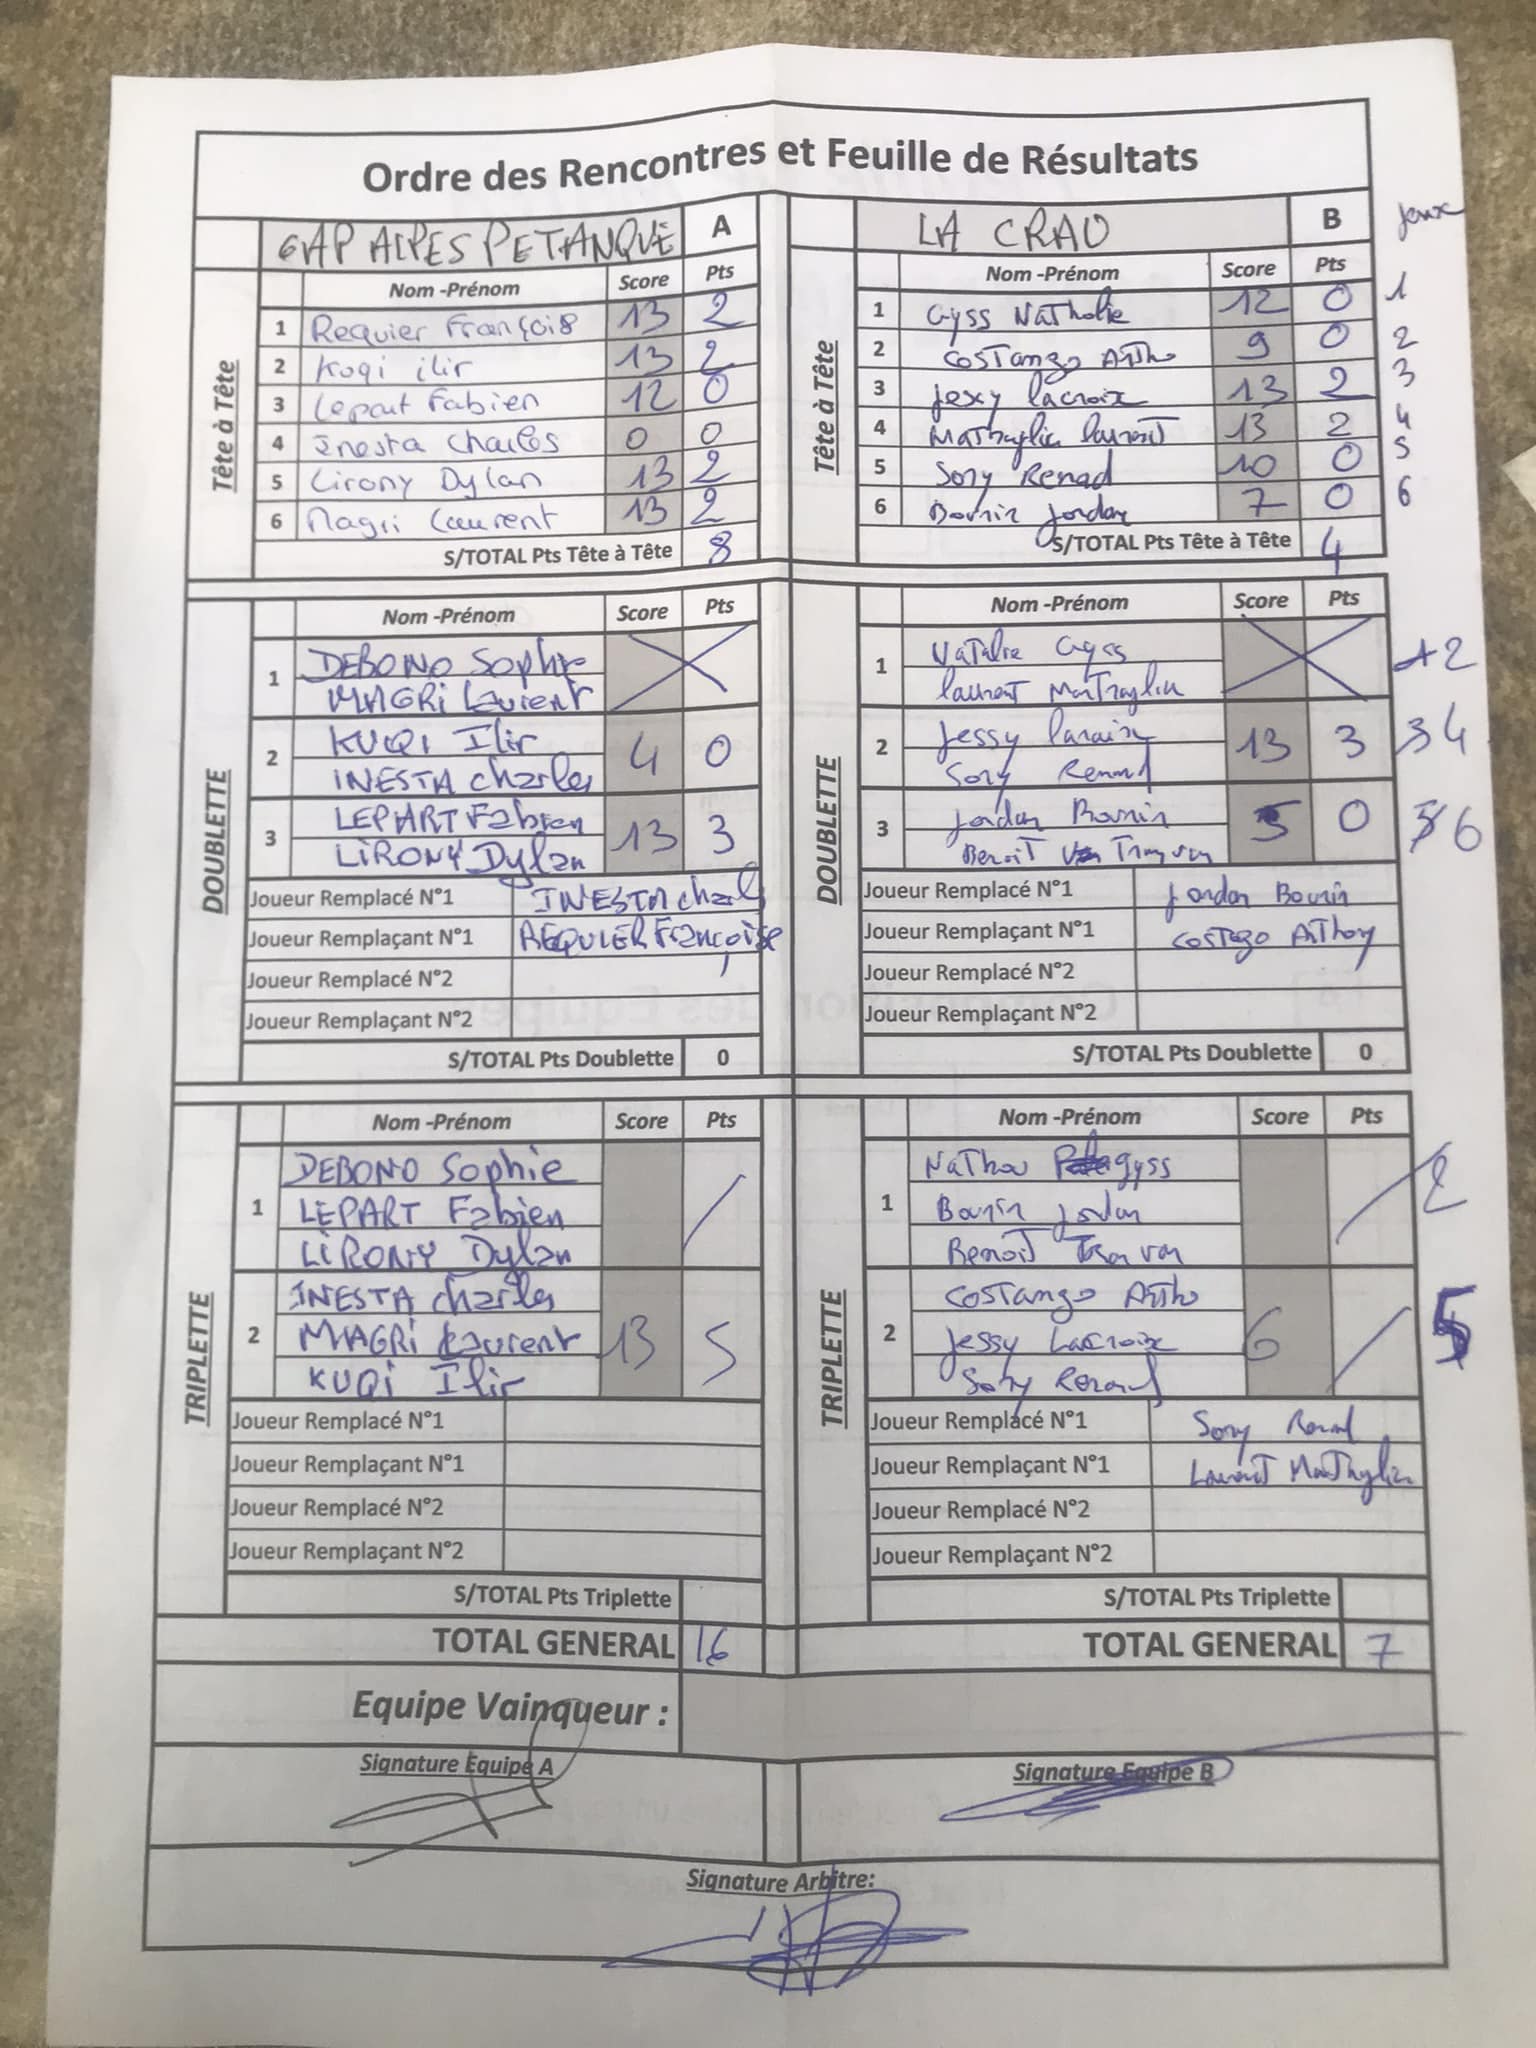 Ordre des Rencontres et Feuille de Résultats
GAP ALPES PETANQUE A LA CRAU B Jeux
Nom -Prénom Score Pts Nom -Prénom Score Pts
Tête à Tête
1 Requier François 13 2
2 Kuqi ilir 13 2
3 Lepart Fabien 12 0
4 Inesta Charles 0 0
5 Lirony Dylan 13 2
6 Magri Laurent 13 2
S/TOTAL Pts Tête à Tête 8
Tête à Tête
1 Gyss Nathalie 12 0 1
2 Costango Antho 9 0 2
3 Jessy lacroix 13 2 3
4 Mathaylin laurent 13 2 4
5 Sony Renad 10 0 5
6 Bounin Jordan 7 0 6
S/TOTAL Pts Tête à Tête 4
DOUBLETTE
Nom -Prénom Score Pts
1 DEBONO Sophie
MAGRi Laurent
2 KUQI Ilir 4 0
INESTA charles
3 LEPART Fabien 13 3
LiRONY Dylan
Joueur Remplacé N°1 INESTA charls
Joueur Remplaçant N°1 REQUIER Françoise
Joueur Remplacé N°2
Joueur Remplaçant N°2
S/TOTAL Pts Doublette 0
DOUBLETTE
Nom -Prénom Score Pts
1 Natalie Gyss 2
laurent Mathaylin
2 Jessy 13 3 4
Sony Renad
3 Jordan Bounin 5 0 6
Benoit
Joueur Remplacé N°1 Jordan Bounin
Joueur Remplaçant N°1 Costago Anthony
Joueur Remplacé N°2
Joueur Remplaçant N°2
S/TOTAL Pts Doublette 0
TRIPLETTE
Nom -Prénom Score Pts
1 DEBONO Sophie
LEPART Fabien
LiRONY Dylan
2 INESTA charles
MAGRi Laurent 13 5
KUQi Ilir
Joueur Remplacé N°1
Joueur Remplaçant N°1
Joueur Remplacé N°2
Joueur Remplaçant N°2
S/TOTAL Pts Triplette
TRIPLETTE
Nom -Prénom Score Pts
1 gyss 2
Bounin Jordan
Benoit
2 Costango Antho 5
Jessy Lacroix 6
Sony Renad
Joueur Remplacé N°1 Sony Renad
Joueur Remplaçant N°1 Laurent Mathaylin
Joueur Remplacé N°2
Joueur Remplaçant N°2
S/TOTAL Pts Triplette
TOTAL GENERAL 16 TOTAL GENERAL 7
Equipe Vainqueur :
Signature Equipe A Signature Equipe B
Signature Arbitre: